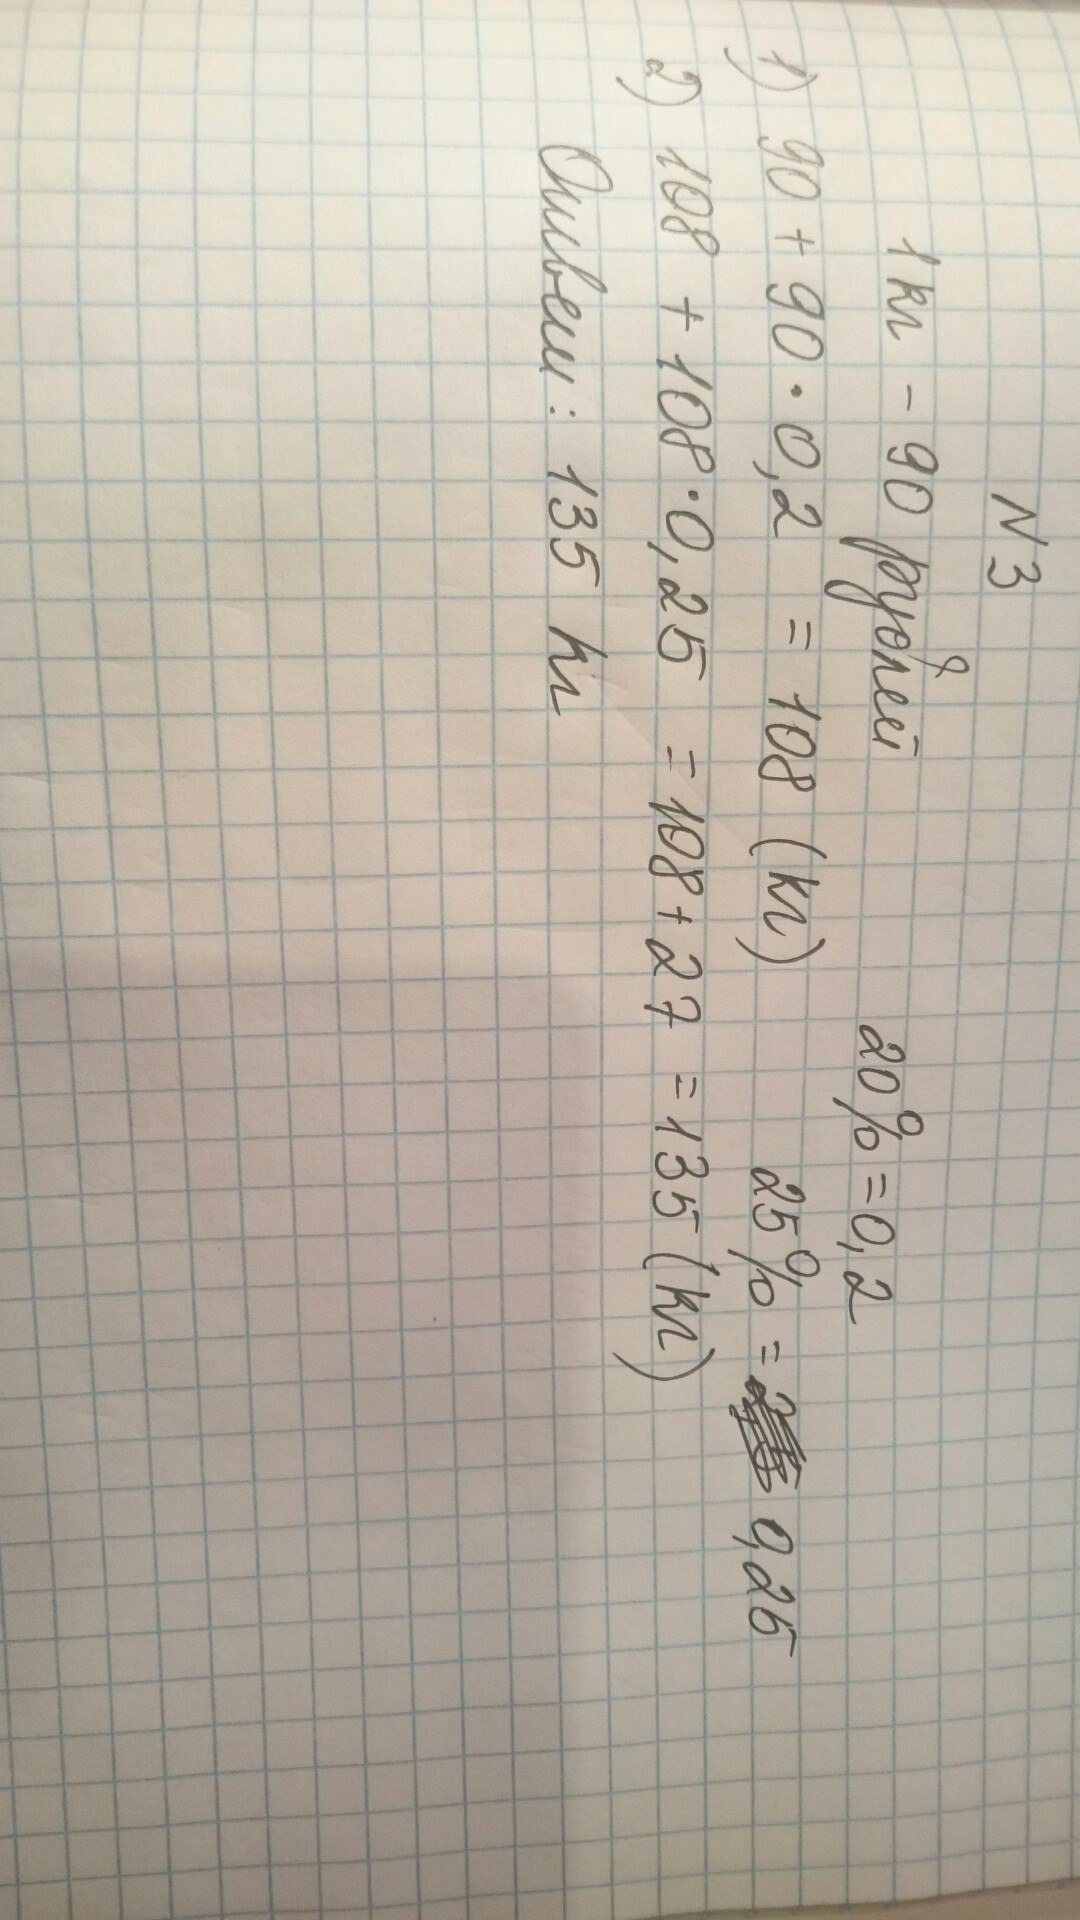 N 3
1 кг - 90 рублей 20% = 0,2
1) 90 + 90 · 0,2 = 108 (кг) 25% = 0,25
2) 108 + 108 · 0,25 = 108 + 27 = 135 (кг)
Ответ: 135 кг